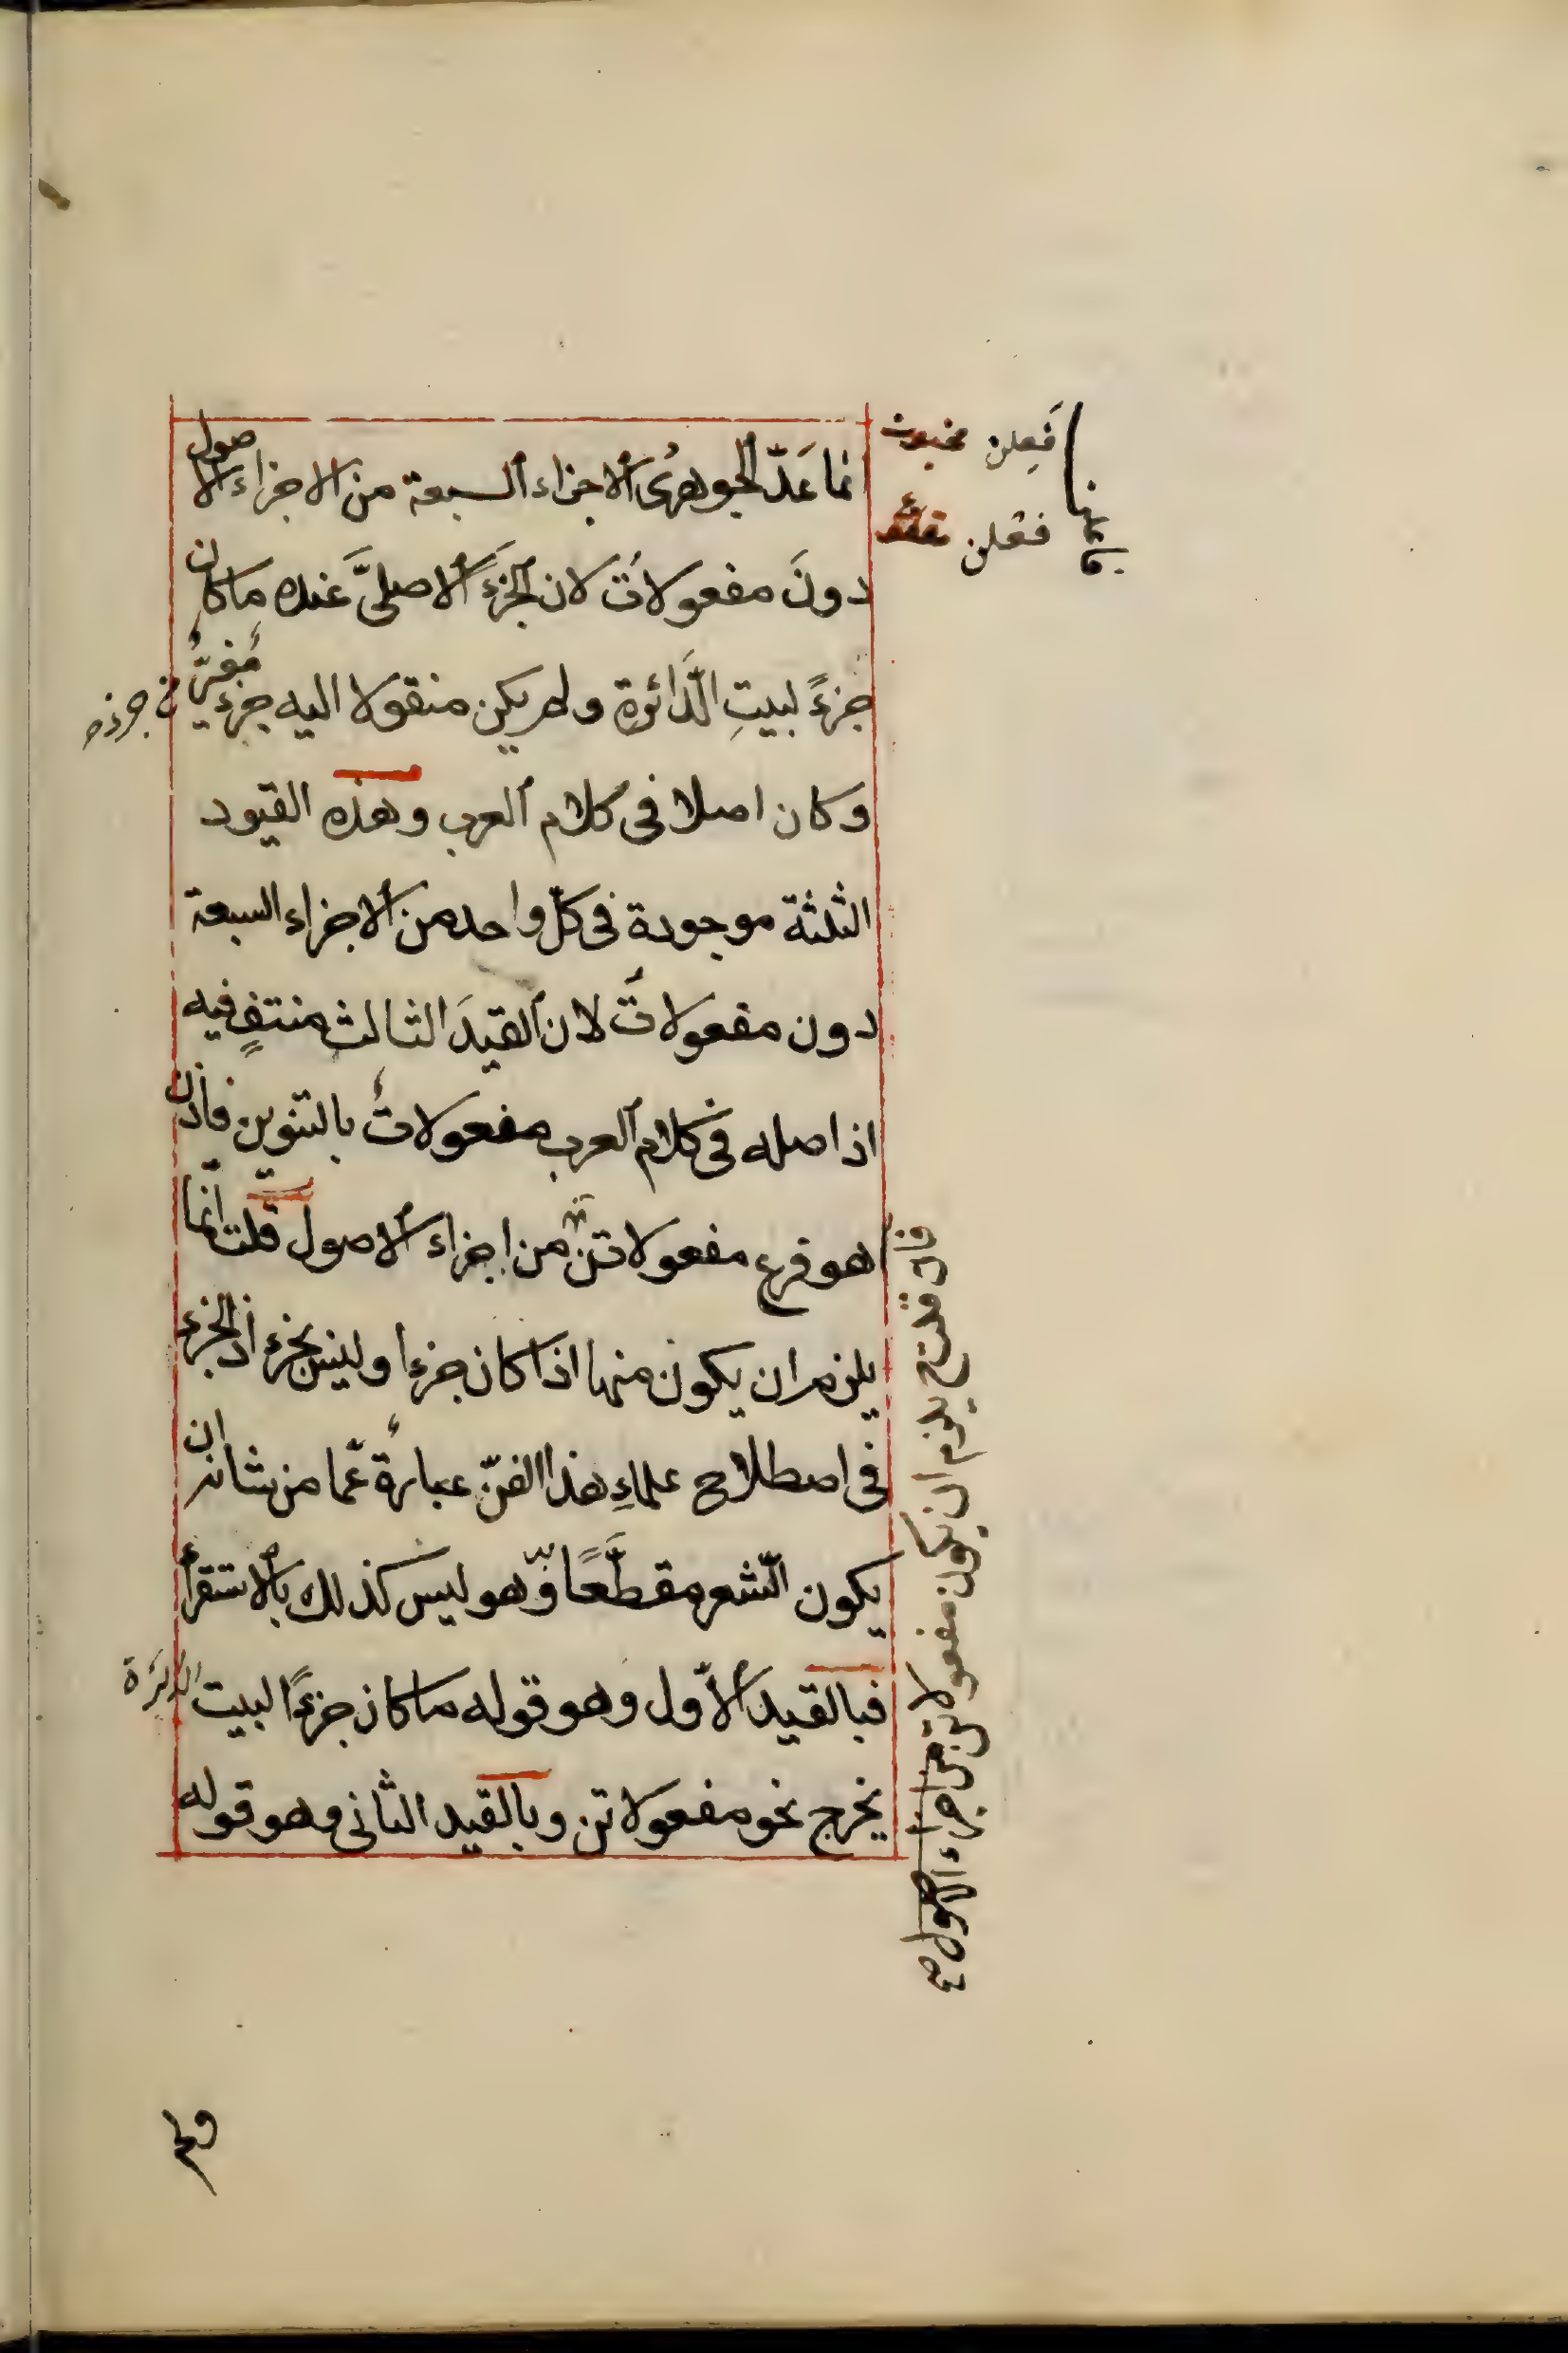 انما عَدّ الجوهرىُ الاجزاء السبعة من الاجزاء الاصول
دونَ مفعولاتُ لان الجزءَ الاصلىَّ عنده ماكان
جزءً لبيتِ الدَّائرة ولم يكن منقولا اليه جزءٌ مُغيّرٌ
وكان اصلا فى كلام العرب وهذه القيود
الثلثة موجودة فى كلّ واحد من الاجزاء السبعة
دون مفعولاتُ لان القيدَ الثالث منتفٍ فيه
اذ اصله فى كلام العرب مفعولاتٌ بالتنوين فاذن
هو فرع مفعولاتن من اجزاء الاصول قلت انّما
يلزم ان يكون منها اذا كان جزءا وليس بجزء اذ الجزء
فى اصطلاح علماءِ هذا الفنّ عبارةٌ عمّا من شانه ان
يكون الشعر مقطَّعًا وهو ليس كذلك بالاستقراء
فبالقيد الاوّل وهو قوله ماكان جزءًا لبيت الدائرة
يخرج نحو مفعولاتن وبالقيد الثانى وهو قوله
فَعِلن مخبون
فعلن
فان قلت ح يلزم ان يكون مفعولاتن من اجزاء الاصول صح
ولم